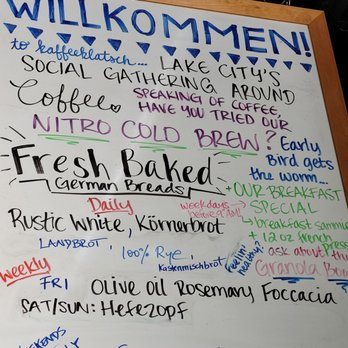 WILLKOMMEN!
to kaffeeklatsch... LAKE CITY'S
SOCIAL GATHERING AROUND
Coffee
SPEAKING OF COFFEE,
HAVE YOU TRIED OUR
NITRO COLD BREW?
Early
Bird gets
the worm...
Fresh Baked
German Breads
weekdays
before 9AM!
+OUR BREAKFAST
SPECIAL
+breakfast sammie
+ 12 oz french press
Daily
Rustic White, Körnerbrot
LANDBROT, 100% Rye,
Kastenmischbrot
Feelin'
healthy?
ask about th
Granola Bow
Weekly
FRI Olive oil Rosemary Foccacia
SAT/SUN: Hefezopf